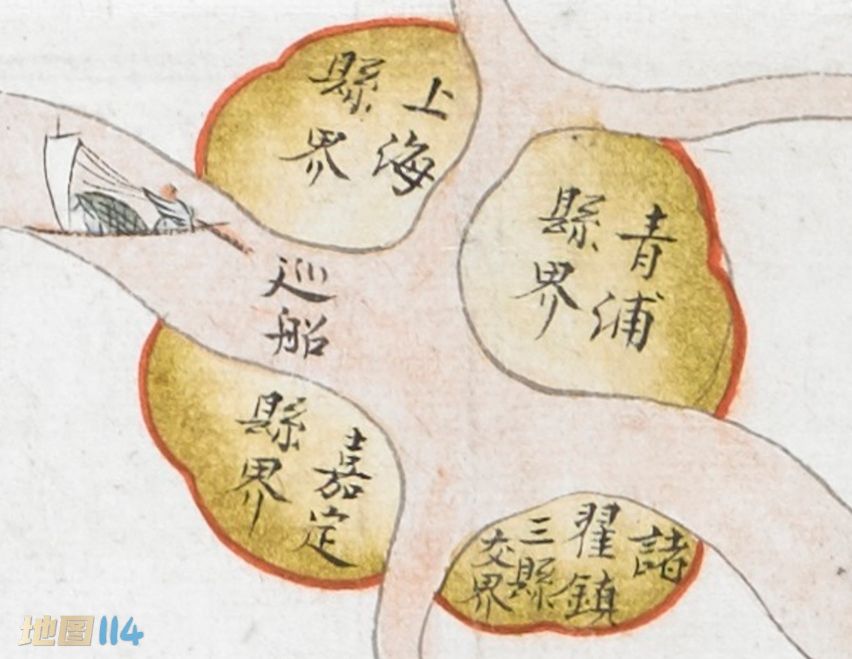 上海
縣界
青浦
縣界
巡船
嘉定
縣界
諸
翟鎮
三縣
交界
地图114